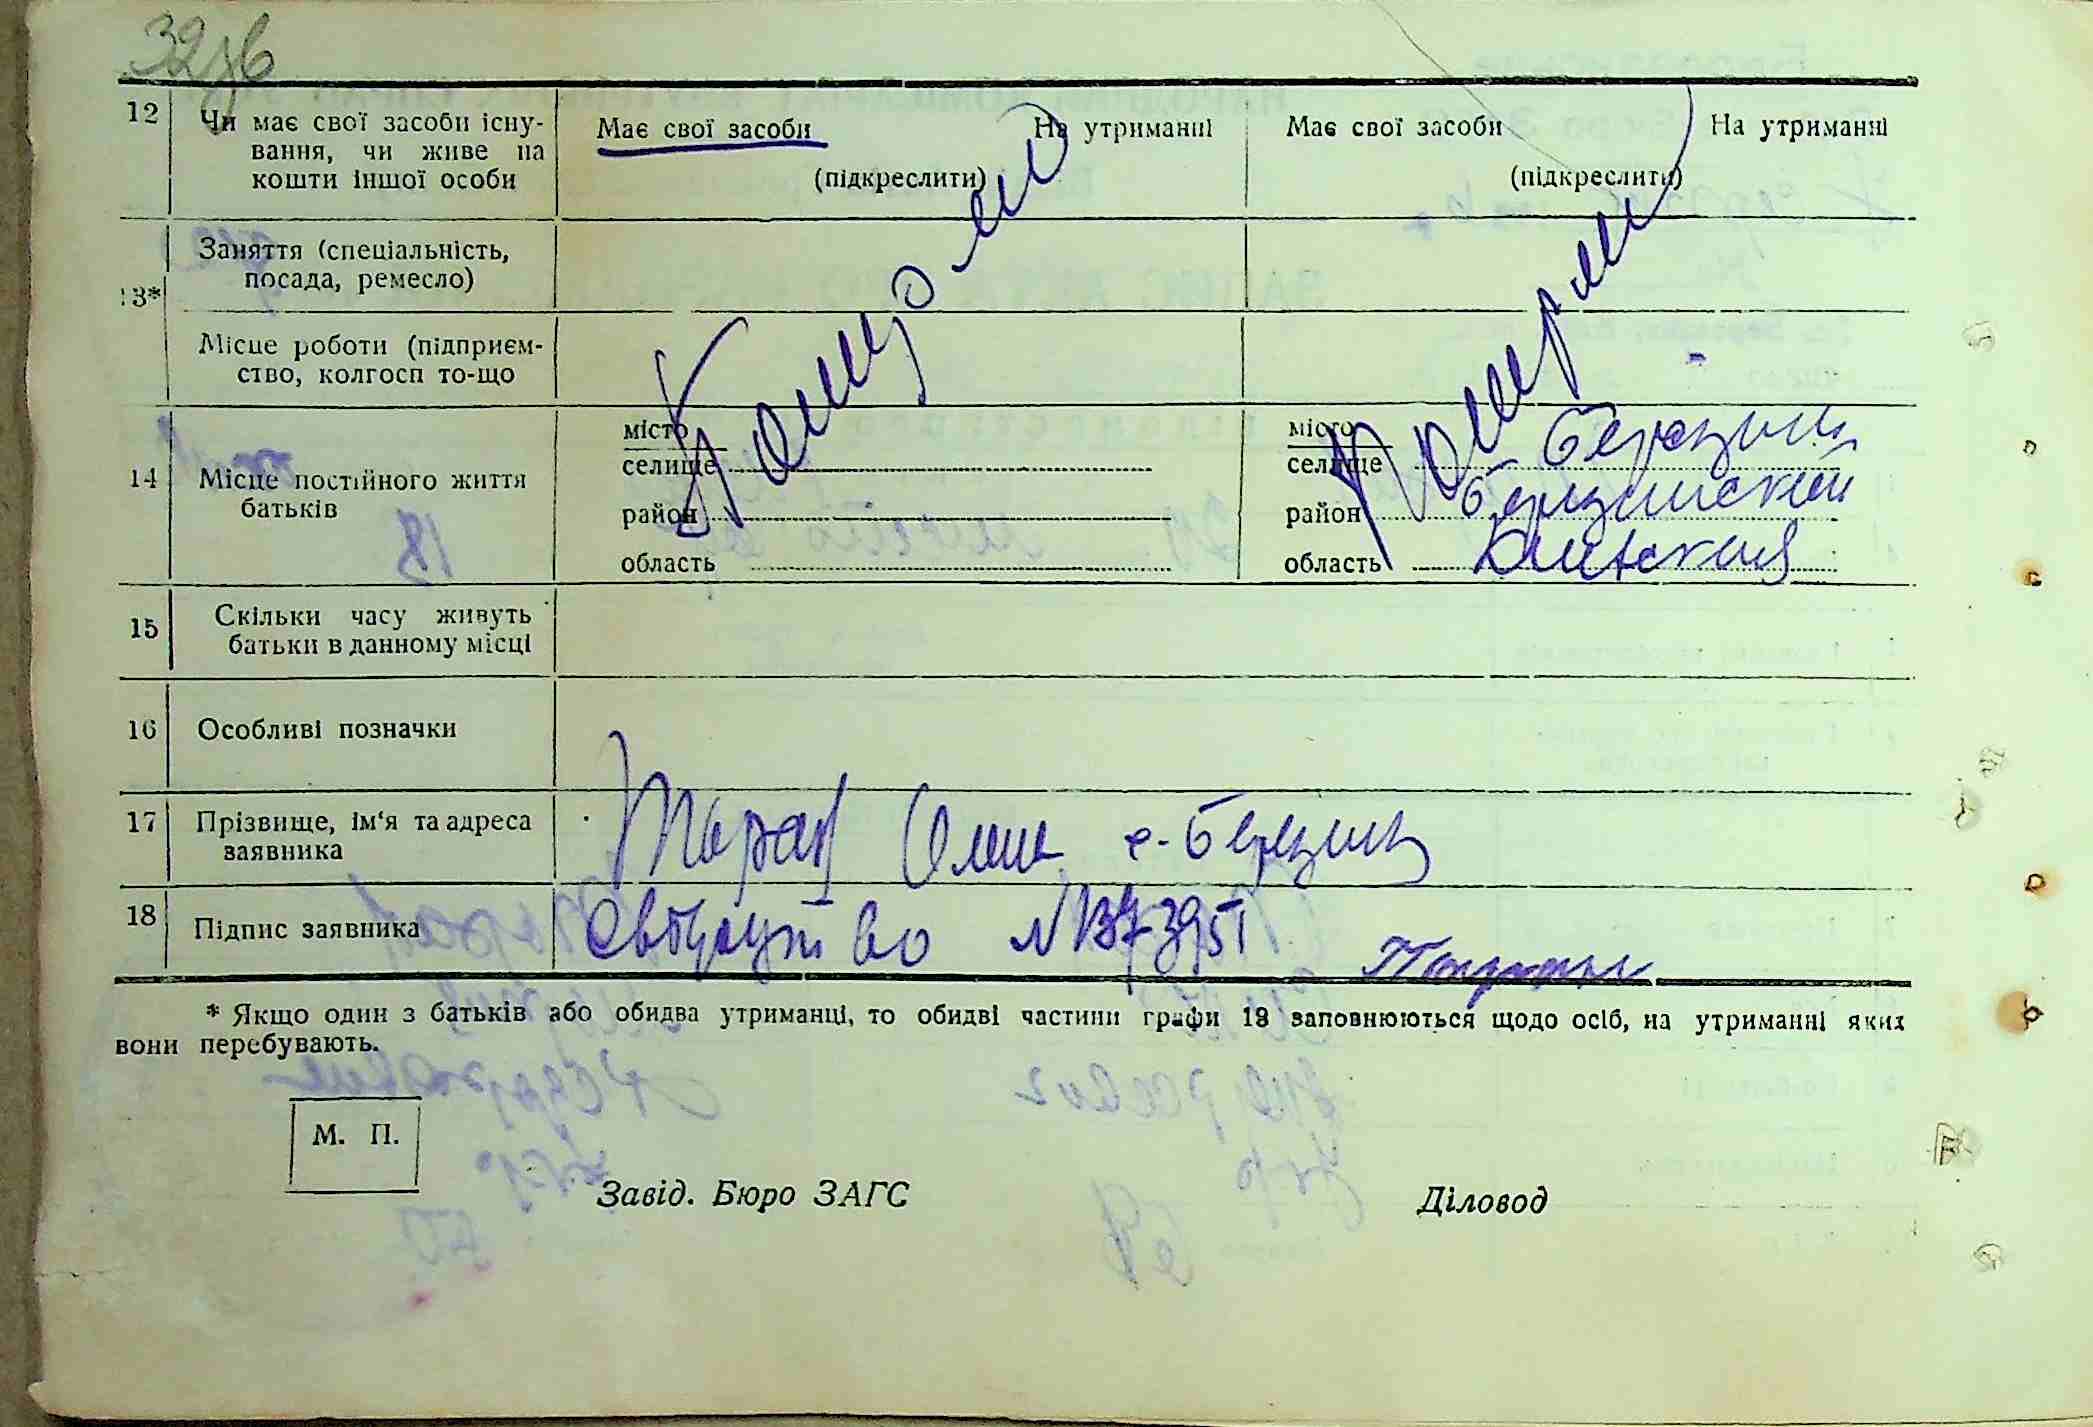 32зв
12 Чи має свої засоби існу-
вання, чи живе на
кошти іншої особи
Має свої засоби На утриманні
(підкреслити)
Має свої засоби На утриманні
(підкреслити)
13* Заняття (спеціальність,
посада, ремесло)
Місце роботи (підприєм-
ство, колгосп то-що
14 Місце постійного життя
батьків
місто
селище
район
область
місто
селище Березина
район Березинский
область
15 Скільки часу живуть
батьки в данному місці
16 Особливі позначки
17 Прізвище, ім‘я та адреса
заявника
Таран с. Березина
18 Підпис заявника
№ 137395
* Якщо один з батьків або обидва утриманці, то обидві частини графи 13 заповнюються щодо осіб, на утриманні яких
вони перебувають.
М. П.
Завід. Бюро ЗАГС Діловод